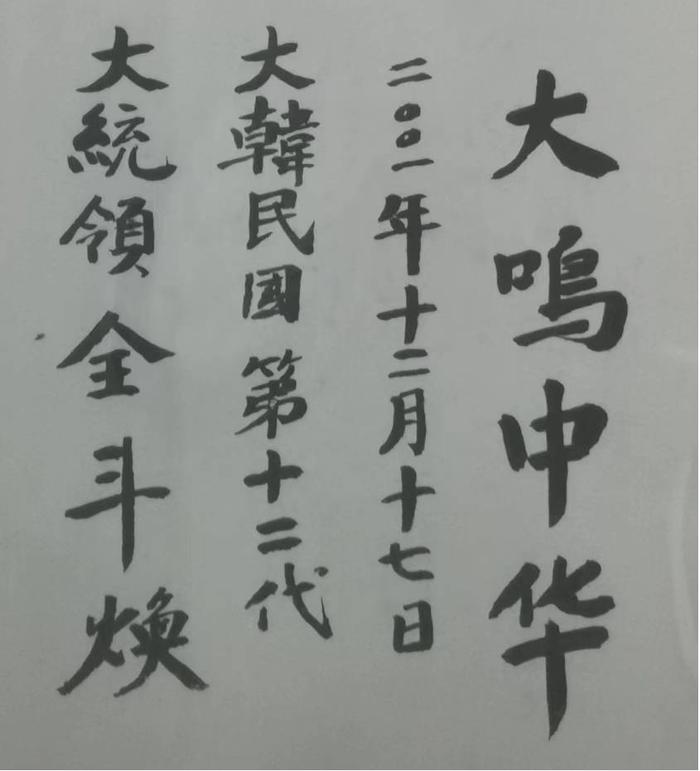 大鳴中华
二〇〇一年十二月十七日
大韓民國第十二代
大統領全斗煥